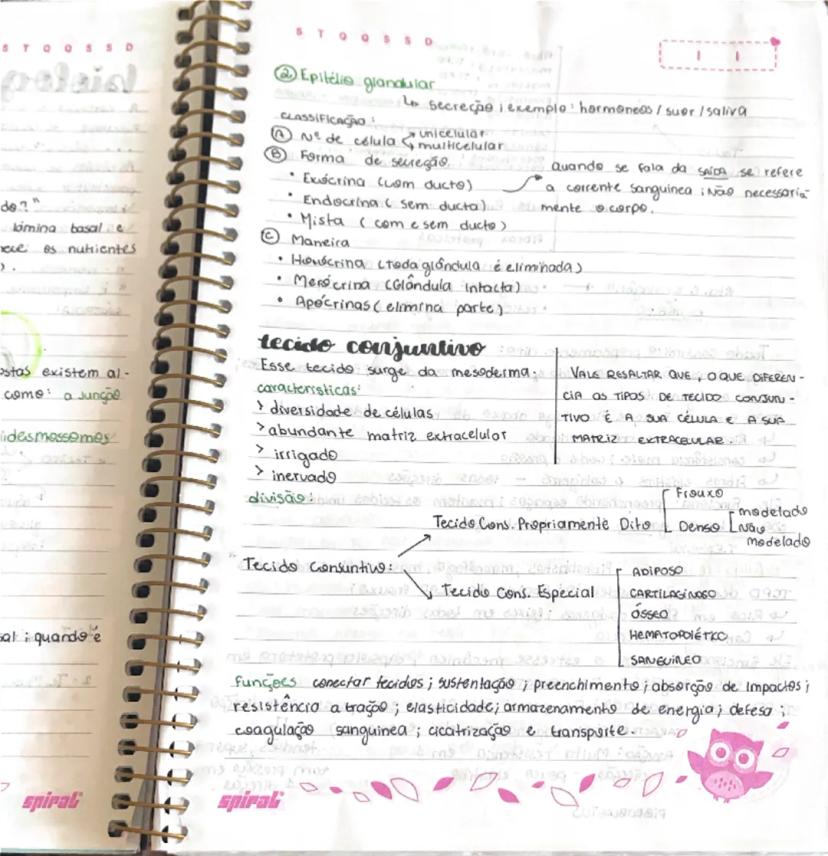 S T Q Q S S D
do?"
lâmina basal e
nece os nutrientes
ostas existem al-
como: a junção
uidesmossomos
al ; quando é
spiral
S T Q Q S S D
② Epitélio glandular
↳ Secreção ; exemplo: hormoneos / suor / saliva
CLASSIFICAÇÃO:
Ⓐ Nº de célula unicelular
multicelular
Ⓑ Forma de secreção
• Exócrina (com ducto)
• Endocrina (sem ducto)
• Mista (com e sem ducto)
quando se fala da saída se refere
a corrente sanguinea ; Não necessaria-
mente o corpo.
Ⓒ Maneira
• Holócrina (toda glândula é eliminada)
• Merócrina (Glândula intacta)
• Apócrinas (elimina parte)
tecido conjuntivo
Esse tecido surge da mesoderma;
características:
> diversidade de células
> abundante matriz extracelular
> irrigado
> inervado
VALE RESALTAR QUE, O QUE DIFEREN-
CIA OS TIPOS DE TECIDO CONJUN-
TIVO É A SUA CÉLULA E A SUA
MATRIZ EXTRACELULAR.
divisão:
Tecido Conjuntivo:
Tecido Cons. Propriamente Dito
Frouxo
Denso
modelado
Não
modelado
Tecido Cons. Especial
ADIPOSO
CARTILAGINOSO
ÓSSEO
HEMATOPOIÉTICO
SANGUÍNEO
funções conectar tecidos ; sustentação ; preenchimento ; absorção de impactos ;
resistência a tração ; elasticidade ; armazenamento de energia ; defesa ;
coagulação sanguinea ; cicatrização e transporte.
spiral